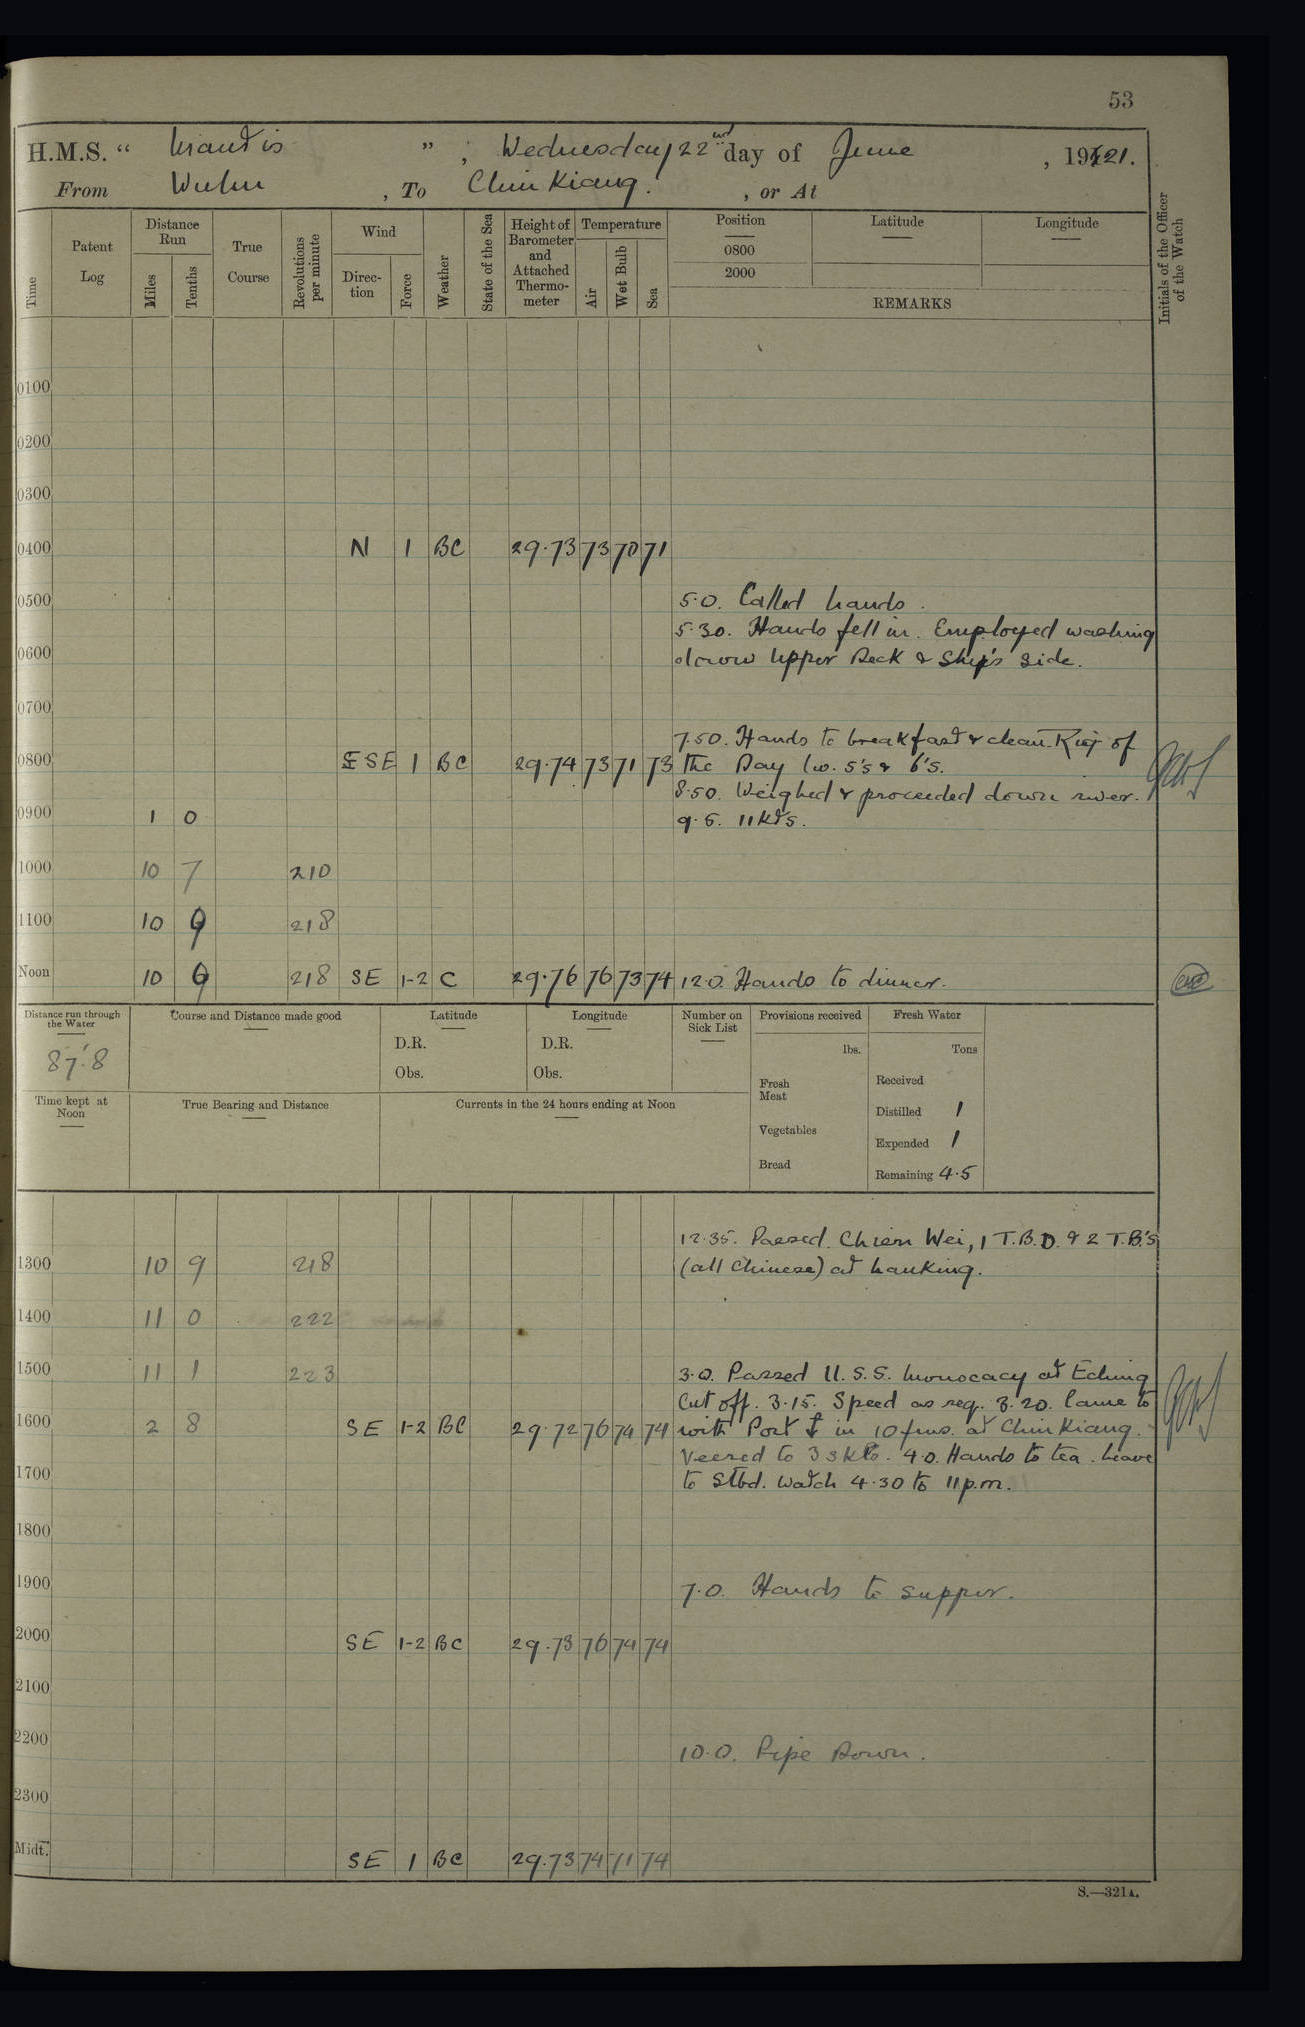 53
H.M.S. “ Mantis ” , Wednesday 22nd day of June , 1921.
From Wuhu , To Chin Kiang. , or At
Time
Patent Log
Distance Run
Miles
Tenths
True Course
Revolutions per minute
Wind
Direc-tion
Force
Weather
State of the Sea
Height of Barometer and Attached Thermo-meter
Temperature
Air
Wet Bulb
Sea
Position
0800
2000
Latitude
Longitude
REMARKS
Initials of the Officer of the Watch
0100
0200
0300
0400 N 1 BC 29.73 73 70 71
0500 5.0. Called hands.
5.30. Hands fell in. Employed washing
0600 down Upper Deck & Ship's side.
0700
7.50. Hands to breakfast & clean. Rig of
0800 ESE 1 BC 29.74 73 71 73 the Day 1w. 5's & 6's.
8.50. Weighed & proceeded down river.
0900 1 0 9.5. 11 kts.
1000 10 7 210
1100 10 9 218
Noon 10 9 218 SE 1-2 C 29.76 76 73 74 12.0. Hands to dinner.
Distance run through the Water
87.8
Course and Distance made good
Latitude
D.R.
Obs.
Longitude
D.R.
Obs.
Number on Sick List
Provisions received
lbs.
Fresh Meat
Vegetables
Bread
Fresh Water
Tons
Received
Distilled 1
Expended 1
Remaining 4.5
Time kept at Noon
True Bearing and Distance
Currents in the 24 hours ending at Noon
12.35. Passed Chien Wei, 1 T.B.D. & 2 T.B.'s
1300 10 9 218 (all Chinese) at Nanking.
1400 11 0 222
1500 11 1 223 3.0. Passed U.S.S. Monocacy at Eching
Cut off. 3.15. Speed as req. 3.20. Came to
1600 2 8 SE 1-2 BC 29.72 76 74 74 with Port ⚓ in 10 fms. at Chin Kiang.
Veered to 3 skls. 4.0. Hands to tea. Leave
1700 to Stbd. Watch 4.30 to 11 p.m.
1800
1900 7.0. Hands to supper.
2000 SE 1-2 BC 29.73 76 74 74
2100
2200 10.0. Pipe Down.
2300
Midt. SE 1 BC 29.73 74 71 74
S.—321A.